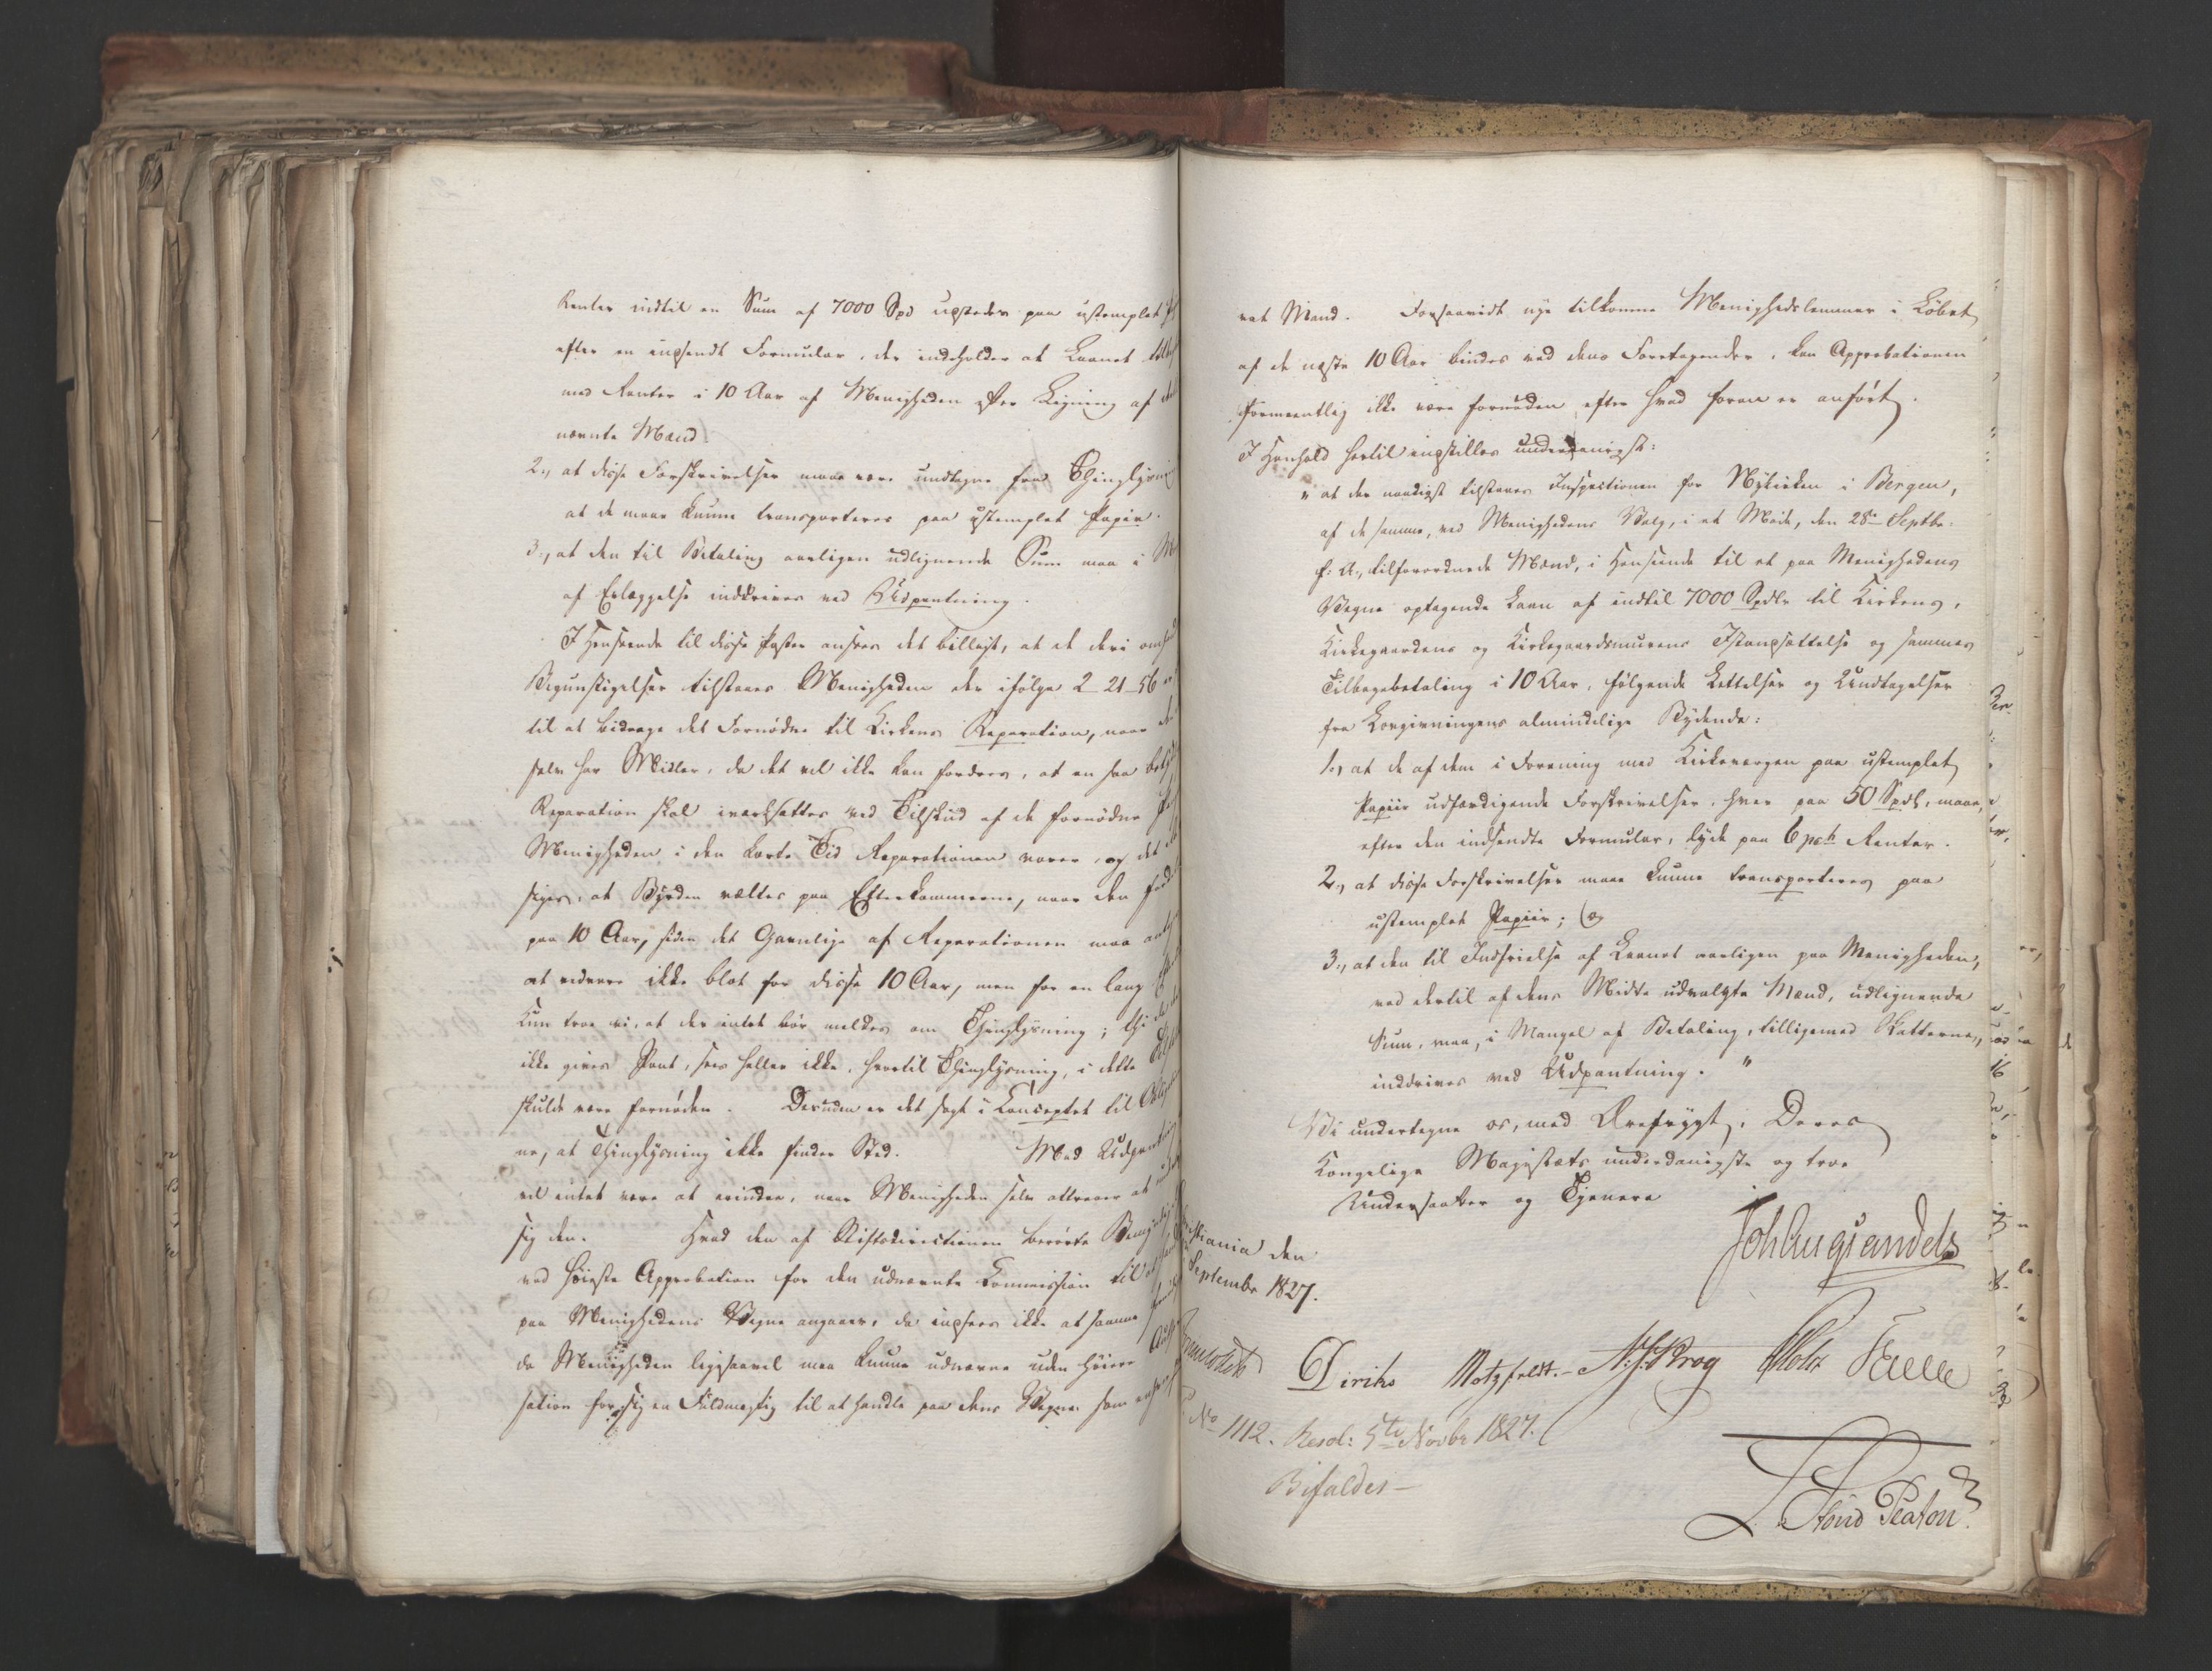 Renter indtil en Sum af 7000 Spd udstedes paa ustemplet
efter en indsendt Formular, der indeholder at Laanet
med Renter i 10 Aar af Menigheden efter Ligning af
nævnte Mænd.
2., at disse Forskrivelser maae være undtagne fra Thinglysning
at de maae kunne transporteres paa ustemplet Papir.
3., at den til Betaling aarligen udlignende Sum maa i
af Erlæggelse inddrives ved Udpantning.
I Henseende til disse Poster ansees det billigt, at de deri
Begunstigelser tilstaaes Menigheden der ifølge 2-21-56 er
til at bidrage det Fornødne til Kirkens Reparation, naar
selv har Midler, da det vel ikke kan fordres, at en saa
Reparation skal iværksættes ved Tilskud af de fornødne
Menigheden i den korte Tid Reparationen varer, og det
siges, at Byrden væltes paa Efterkommerne, naar den
paa 10 Aar, siden det Gavnlige af Reparationen maa
at vedvare ikke blot for disse 10 Aar, men for en lang
Kun troe vi, at der intet bør meldes om Thinglysning; thi
ikke gives Pant, sees heller ikke, hvortil Thinglysning, i dette
skulde være fornøden. Desuden er det sagt i Conceptet til
ne, at Thinglysning ikke finder Sted. Mod Udpantning
vil intet være at erindre, naar Menigheden selv attraaer at
sig den. Hvad den af Stiftsdirectionen berørte
ved høieste Approbation for den udnævnte Commission til
paa Menighedens Vegne angaaer, da indsees ikke at saame
da Menigheden ligesaavel maa kunne udnævne uden høiere
sation for sig en Fuldmægtig til at handle paa dens Vegne som
ret Mand. Forsaavidt nye tilkomne Menighedslemmer i Løbet
af de næste 10 Aar bindes ved dens Foretagender, kan Approbationen
formeentlig ikke være fornøden efter hvad foran er anført.
I Henhold hertil indstilles underdanigst:
"at der naadigst tilstaaes Inspectionen for Nykirken i Bergen,
af de samme, ved Menighedens Valg, i et Møde, den 28de Septbr.
f: A:, tilforordnede Mænd, i Henseende til et paa Menighedens
Vegne optagende Laan af indtil 7000 Spdlr til Kirkens,
Kirkegaardens og Kirkegaardsmurens Istandsættelse og sammes
Tilbagebetaling i 10 Aar, følgende Lettelser og Undtagelser
fra Lovgivningens almindelige Bydende:
1., at de af dem i Forening med Kirkeværgen paa ustemplet
Papiir udfærdigende Forskrivelser, hver paa 50 Spdlr, maae,
efter den indsendte Formular, lyde paa 6 pct Renter.
2., at disse Forskrivelser maae kunne transporteres paa
ustemplet Papiir; og
3., at den til Indfrielse af Laanet aarligen paa Menigheden,
ved dertil af dens Midte udvalgte Mænd, udlignende
Sum, maa, i Mangel af Betaling, tilligemed Skatterne,
inddrives ved Udpantning."
Vi undertegne os, med Ærefrygt, Deres
Kongelige Majestæts underdanigste og troe
Undersaatter og Tjenere
Joh Aug Sandels
stiania den
September 1827.
Diriks Motzfeldt. N. J. Krog Holst Fasting
No 1112. Resol: 5te Novbr 1827.
Bifaldes